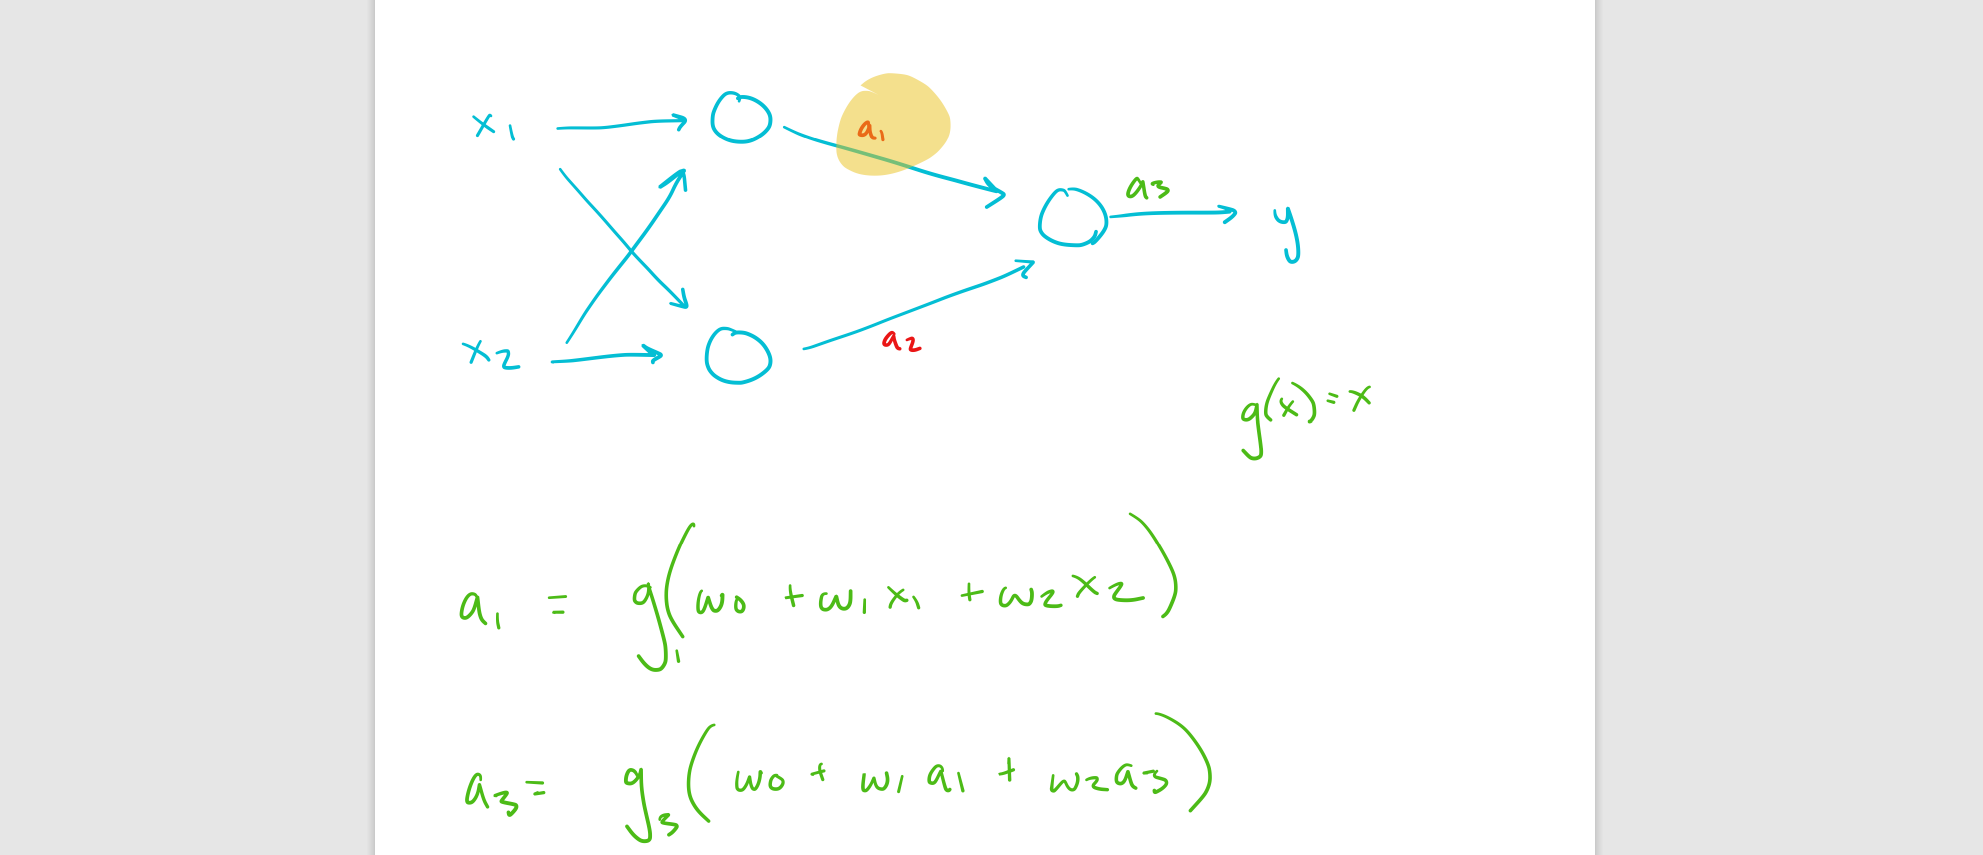 x1
a1
a3
y
x2
a2
g(x) = x
a1 = g1(w0 + w1 x1 + w2 x2)
a3 = g3(w0 + w1 a1 + w2 a3)